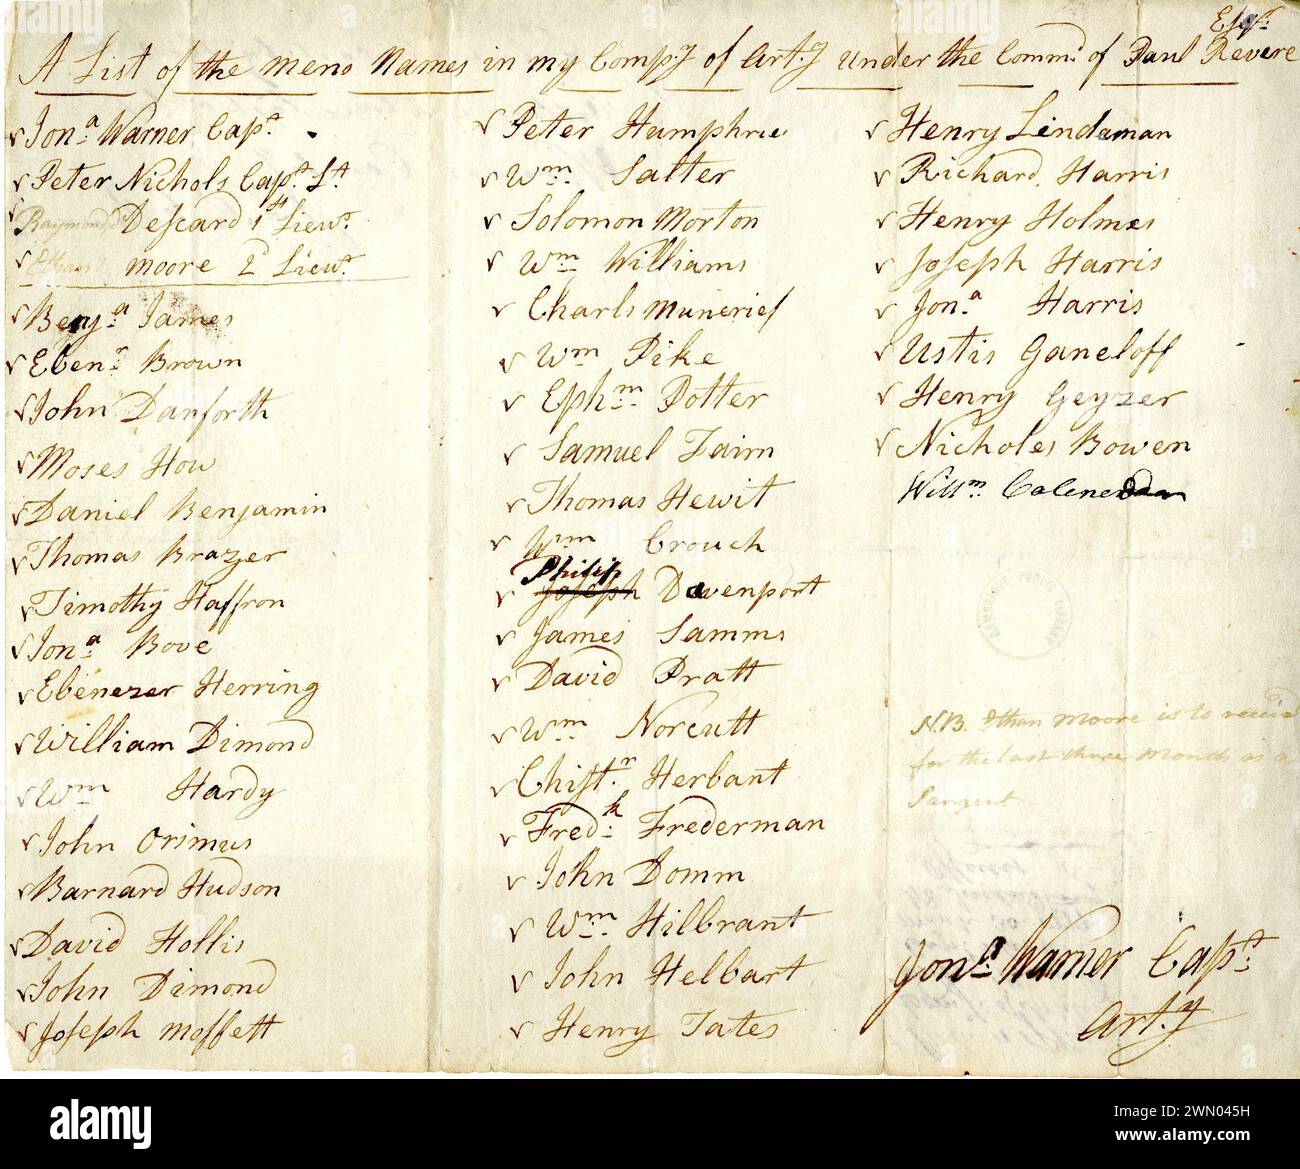 Esqr.
A List of the mens Names in my Compy of Arty under the Commd of Paul Revere
Jona Warner Capt
Peter Nichols Capt Lt
Raymond Descard 1st Lieut
Ethan moore 2d Lieut
Benja James
Ebenr Brown
John Danforth
Moses How
Daniel Benjamin
Thomas Brazer
Timothy Haffron
Jona Bove
Ebenezer Herring
William Dimond
Wm Hardy
John Orimus
Barnard Hudson
David Hollis
John Dimond
Joseph Moffett
Peter Humphrie
Wm Salter
Solomon Morton
Wm Williams
Charls Munerief
Wm Pike
Ephm Potter
Samuel Tairn
Thomas Hewit
Wm Crouch
Philip
Joseph Davenport
James Samms
David Pratt
Wm Norcutt
Chistr Herbant
Fredk Frederman
John Domm
Wm Hilbrant
John Helbart
Henry Tates
Henry Lindaman
Richard Harris
Henry Holmes
Joseph Harris
Jona Harris
Ustis Ganeloff
Henry Geyzer
Nicholes Bowen
Willm
N.B. Ethan Moore is to
for the last three Month as a
Sargent
Jona Warner Capt
Arty
alamy
Image ID: 2WN045H
www.alamy.com